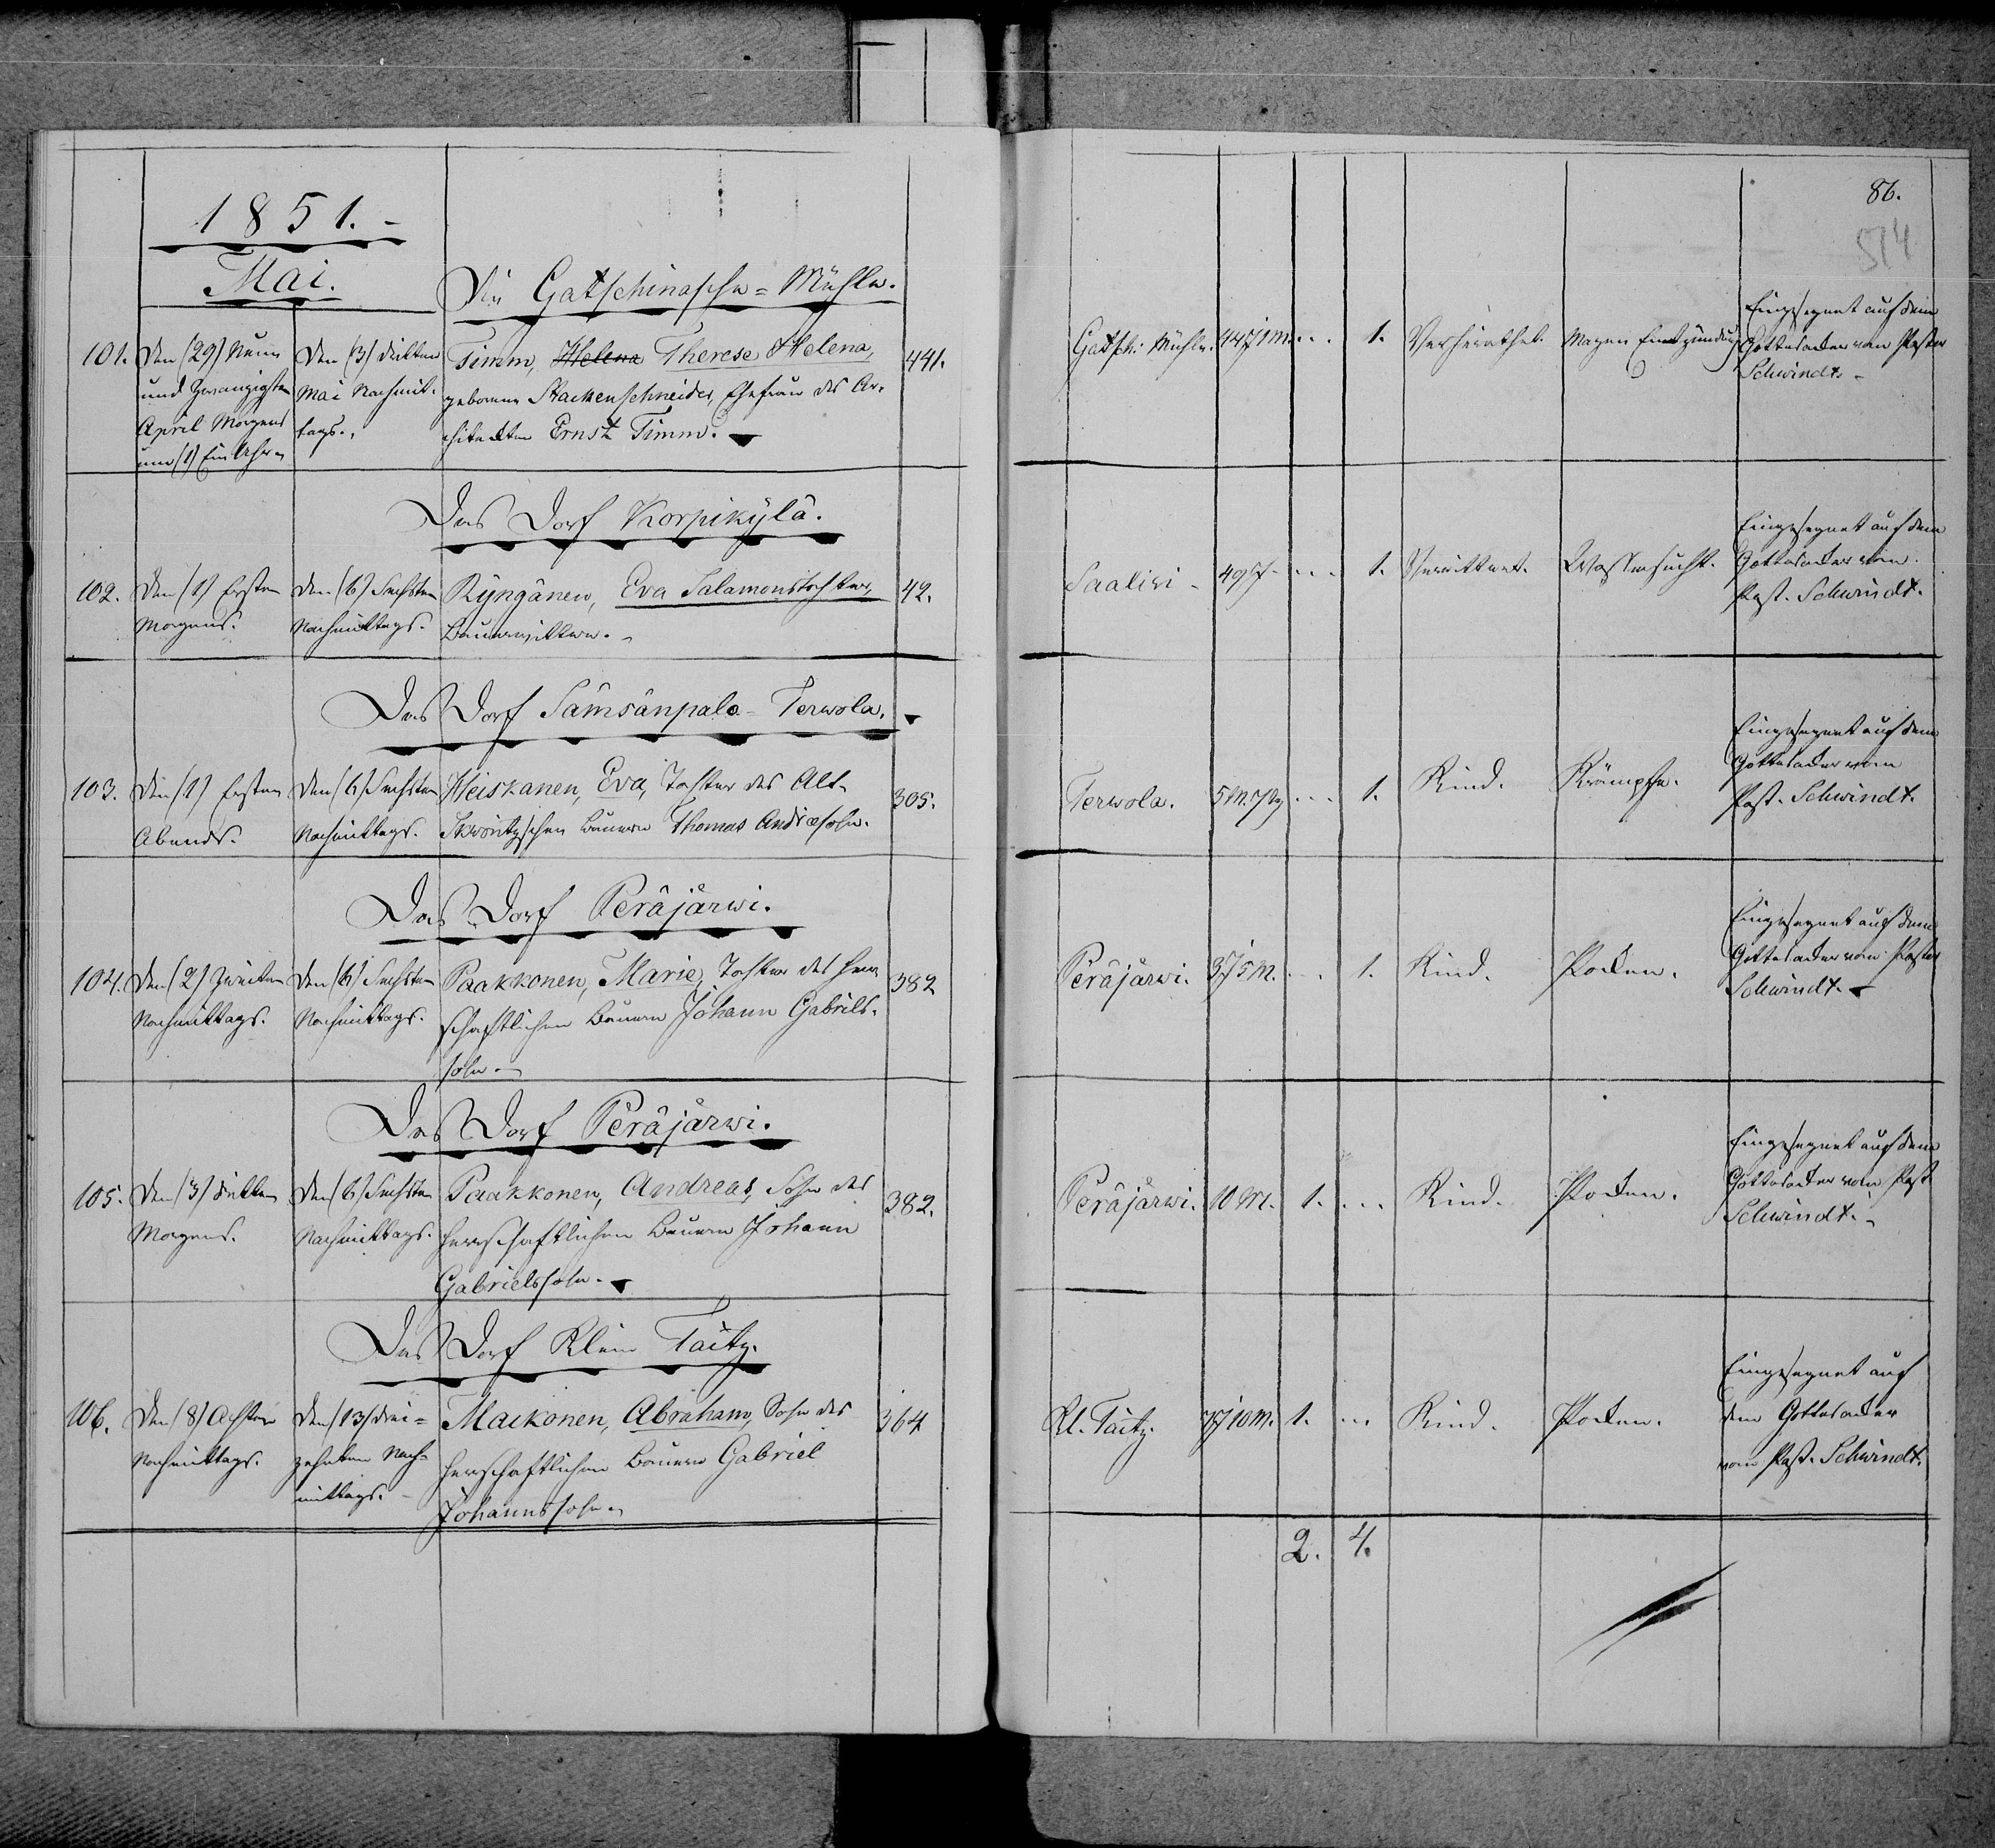 1851.-
Mai.
Die Gatschinasche-Mühle.
101. Den (29) Neun
und Zwanzigsten
April Morgens
um (1) Ein Uhr.
Den (3) dritten
Mai Nachmit-
tags.
Timm, Helena Therese Helena,
geborene Stackenschneider, Ehefrau des Ar-
chitecten Ernst Timm.
441.
Das Dorf Korpikylä.
102. Den (1) Ersten
Morgens.
Den (6) Sechsten
Nachmittags.
Ryngänen, Eva Salamonstochter,
Bauerwittwe.
42.
Das Dorf Sämsänpala-Terwola.
103. Den (1) Ersten
Abends.
Den (6) Sechsten
Nachmittags.
Heiskanen, Eva, Tochter des Alt-
Skworitzschen Bauern Thomas Andreæsohn.
305.
Das Dorf Peräjärwi.
104. Den (2) Zweiten
Nachmittags.
Den (6) Sechsten
Nachmittags.
Paakkonen, Marie, Tochter des herr
schaftlichen Bauern Johann Gabriels-
sohn.
382
Das Dorf Peräjärwi.
105. Den (3) dritten
Morgens.
Den (6) Sechsten
Nachmittags.
Paakkonen, Andreas, Sohn des
herrschaftlichen Bauern Johann
Gabrielssohn.
382.
Das Dorf Klein Taitz.
106. Den (8) Achten
Nachmittags.
Den (13) drei-
zehnten Nach-
mittags.
Maikonen, Abraham, Sohn des
herrschaftlichen Bauern Gabriel
Johannssohn.
364
86.
514
Gatsch: Mühle. 44j1m. ... 1. Verheirathet. Magen Entzündung
Eingesegnet auf dem
Gottesacker vom Pastor
Schwindt.
Saalivi 49j. ... 1. Verwittwet. Wassersucht.
Eingesegnet auf dem
Gottesacker vom
Past. Schwindt.
Terwola. 5m. ... 1. Kind. Krämpfe.
Eingesegnet auf dem
Gottesacker vom
Past. Schwindt.
Peräjärwi. 3j5m. ... 1. Kind. Pocken.
Eingesegnet auf dem
Gottesacker vom Pastor
Schwindt.
Peräjärwi. 10 m. 1. ... Kind. Pocken.
Eingesegnet auf dem
Gottesacker vom Past
Schwindt.
Kl. Taitz. 7j10m. 1. ... Kind. Pocken.
Eingesegnet auf
dem Gottesacker
vom Past. Schwindt.
2. 4.